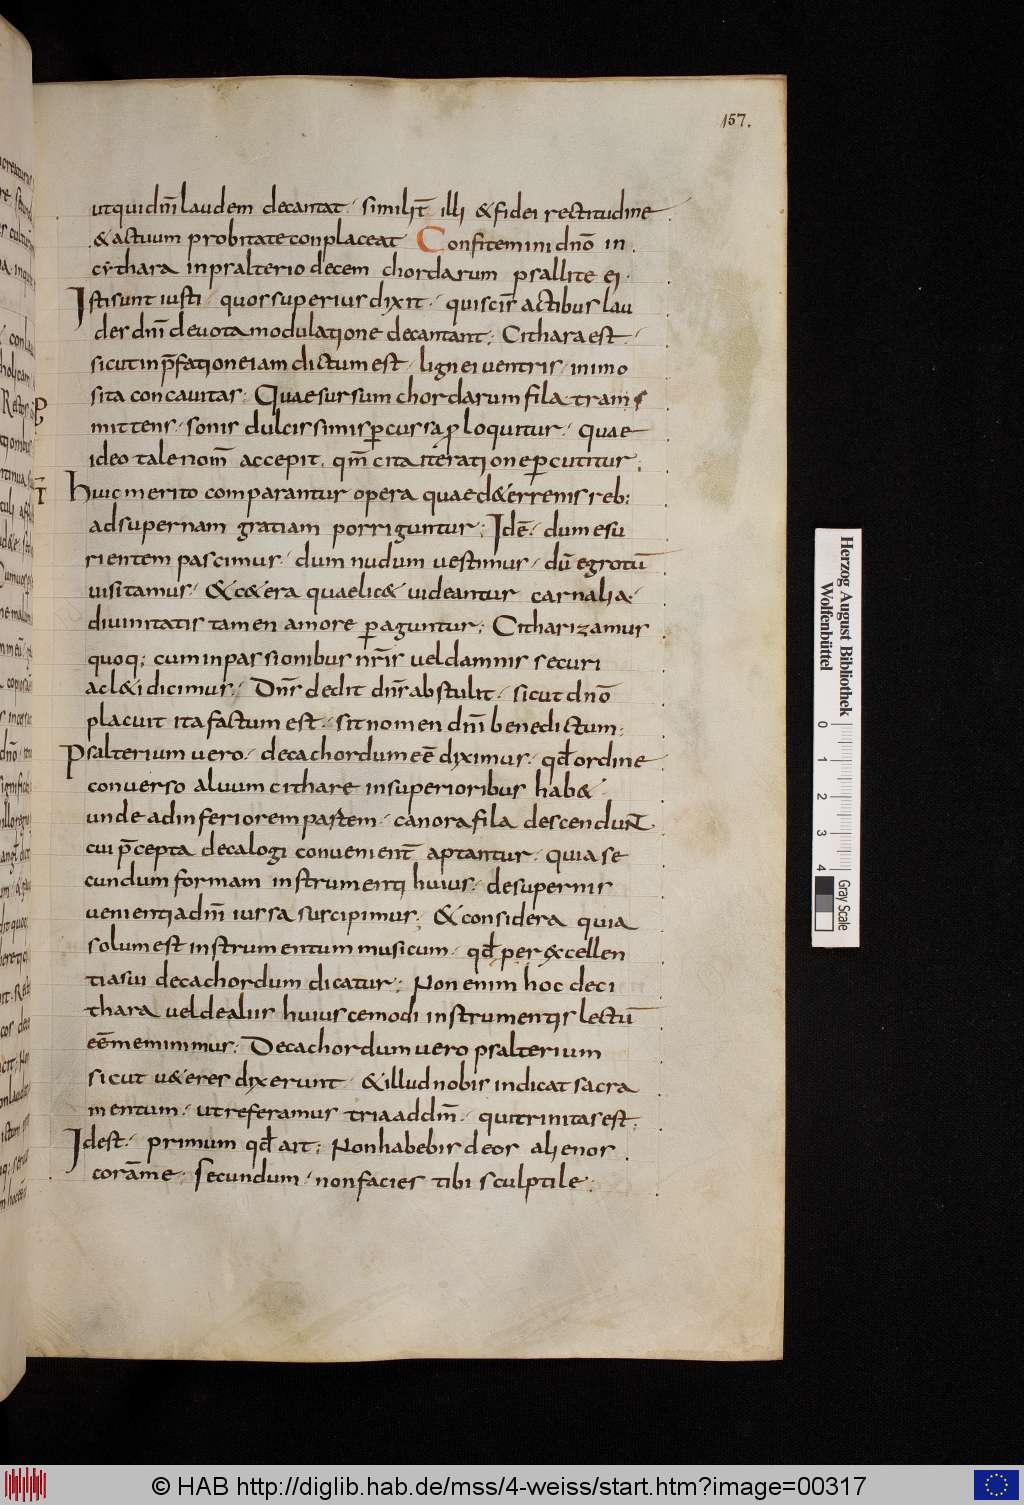 157.
ut qui dnī laudem decantat· similit̄ illi & fidei rectitudine
& actuum probitate conplaceat Confitemini dnō in
cythara in psalterio decem chordarum psallite ei·
Isti sunt iusti· quos superius dixit· qui scīs actibus lau
des dnī deuota modulatione decantant; Cithara est·
sicut in p̄fatione iam dictum est· lignei uentris· in imo
sita concauitas; Quae sursum chordarum fila trans
mittens· sonis dulcissimis p̲cussa ꝓloquitur· Quae
ideo tale nom̄ accepit, qm̄ cita iteratione p̲cutitur;
Huic merito comparantur opera quae de terrenis reb;
ad supernam gratiam porriguntur; Idē· dum esu
rientem pascimus· dum nudum uestimus· dū egrotū
uisitamus· & c&era quae lic& uideantur carnalia·
diuinitatis tamen amore p̲aguntur; Citharizamus
quoq; cum in passionibus nr̄is uel damnis securi
ac l&i dicimus; Dn̄s dedit dn̄s abstulit· sicut dnō
placuit ita factum est· sit nomen dnī benedictum;
Psalterium uero· decachordum eē diximus· qd̄ ordine
conuerso aluum cithare in superioribus hab&·
unde ad inferiorem partem· canora fila descendunt̄·
cui p̄cepta decalogi conuenient̄ aptantur· quia se
cundum formam instrumenti huius· desupernis
uenienti a dnī iussa suscipimus; & considera quia
solum est instrumentum musicum· qd̄ per excellen
tia sui decachordum dicatur; Non enim hoc de ci
thara uel de aliis huiuscemodi instrumentis lectū
eē meminimus; Decachordum uero psalterium
sicut u&eres dixerunt· & illud nobis indicat sacra
mentum· ut referamus tria ad dnm̄· qui trinitas est;
Id est· primum qd̄ ait; Non habebis deos alienos
corā me; secundum· non facies tibi sculptile;
Herzog August Bibliothek
Wolfenbüttel
0 1 2 3 4
Gray Scale
© HAB http://diglib.hab.de/mss/4-weiss/start.htm?image=00317